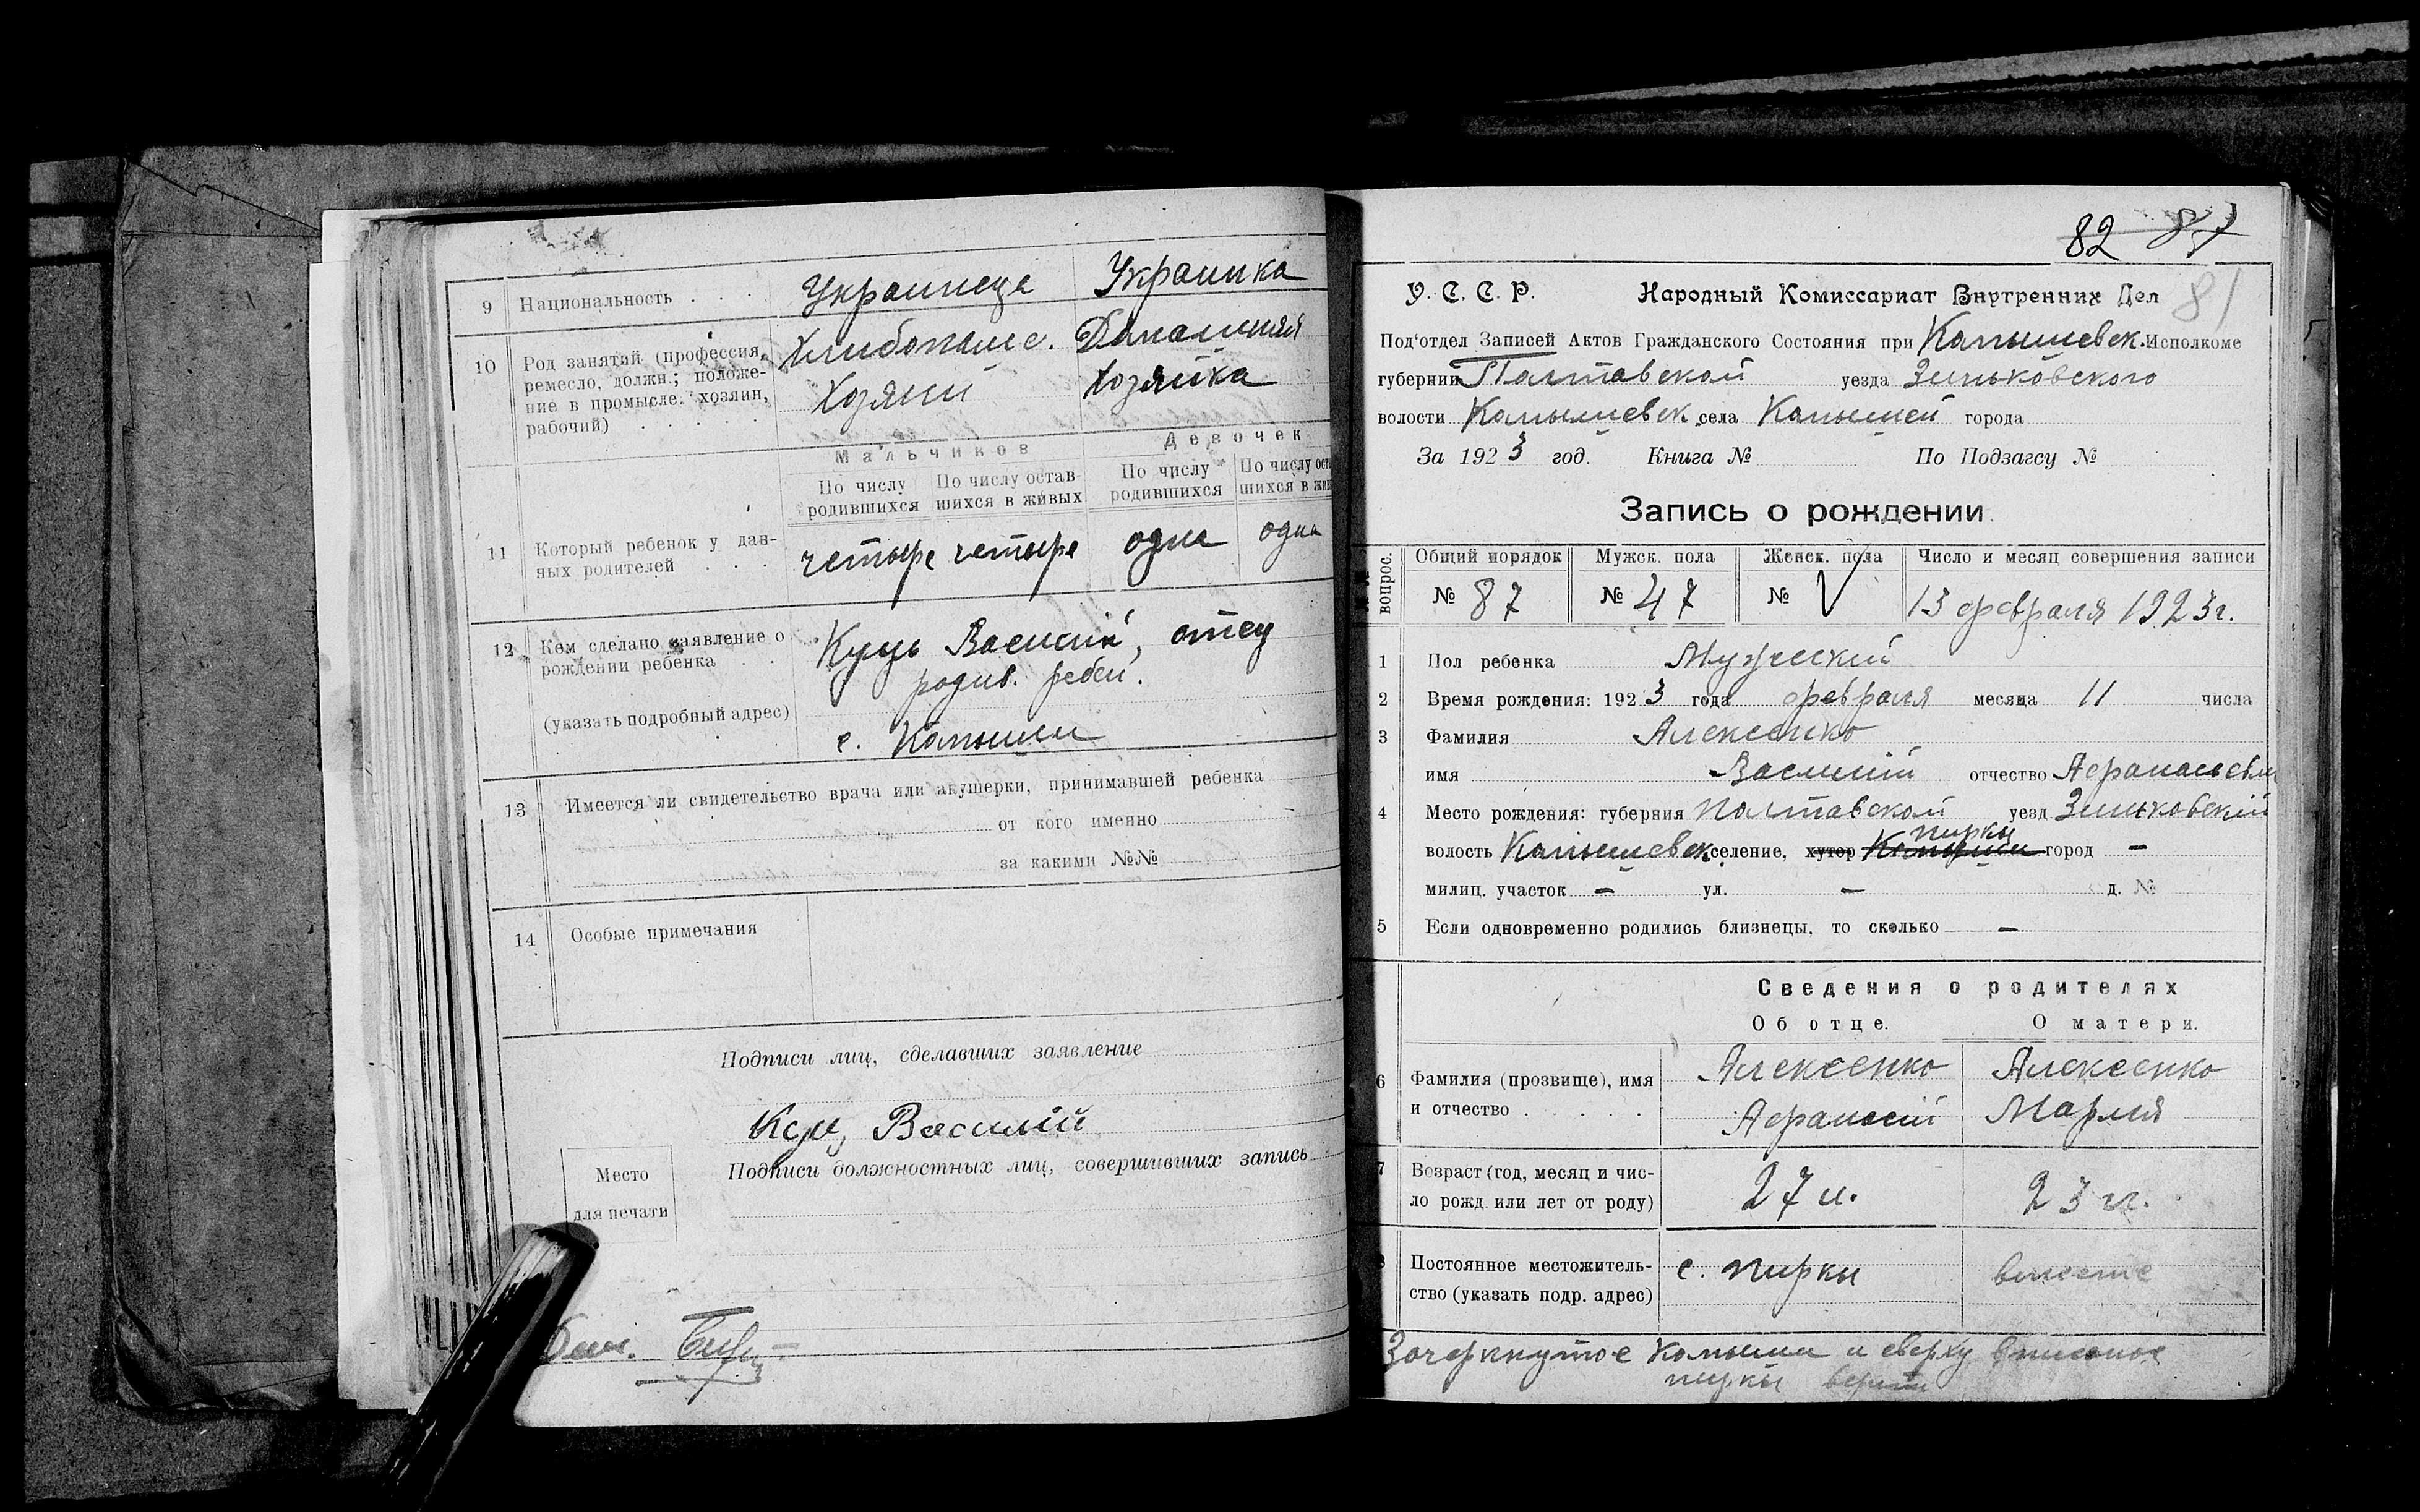 9 Национальность . . . Украинец Украинка
10 Род занятий (профессия, ремесло, должн.; положение в промысле: хозяин, рабочий) . . . . .
Хлибопаше. Домашняя
Хозяин Хозяйка
Мальчиков Девочек
По числу родившихся По числу оставшихся в живых По числу родившихся По числу оставшихся в жив
11 Который ребенок у данных родителей . . . четыре четыре одна одна
12 Кем сделано заявление о рождении ребенка . .
Куць Василий, отец
родив. ребен.
(указать подробный адрес)
с. Комыши
13 Имеется ли свидетельство врача или акушерки, принимавшей ребенка
от кого именно
за какими №№
14 Особые примечания
Подписи лиц, сделавших заявление
Куц Василій
Подписи должностных лиц, совершивших запись
Место
для печати
82 87
81
У. С. С. Р. Народный Комиссариат Внутренних Дел
Под'отдел Записей Актов Гражданского Состояния при Комышевск. Исполкоме
губернии Полтавской уезда Зиньковского
волости Комышевск. села Комышей города
За 1923 год. Книга № По Подзагсу №
Запись о рождении
вопрос. Общий порядок Мужск. пола Женск. пола Число и месяц совершения записи
№ 87 № 47 № V 13 февраля 1923 г.
1 Пол ребенка Мужеский
2 Время рождения: 1923 года февраля месяца 11 числа
3 Фамилия Алексенко
имя Василий отчество Афанасьеви
4 Место рождения: губерния Полтавской уезд Зиньковский
пирки
волость Комышевск. селение, хутор Комыши город —
милиц. участок — ул. — д. №
5 Если одновременно родились близнецы, то сколько —
Сведения о родителях
Об отце. О матери.
6 Фамилия (прозвище), имя и отчество . . .
Алексенко Алексенко
Афанасий Мария
7 Возраст (год, месяц и число рожд. или лет от роду) 27 л. 23 г.
8 Постоянное местожительство (указать подр. адрес) с. пирки вместе
Зачеркнутое Комыши и сверху вписаное
пирки верит